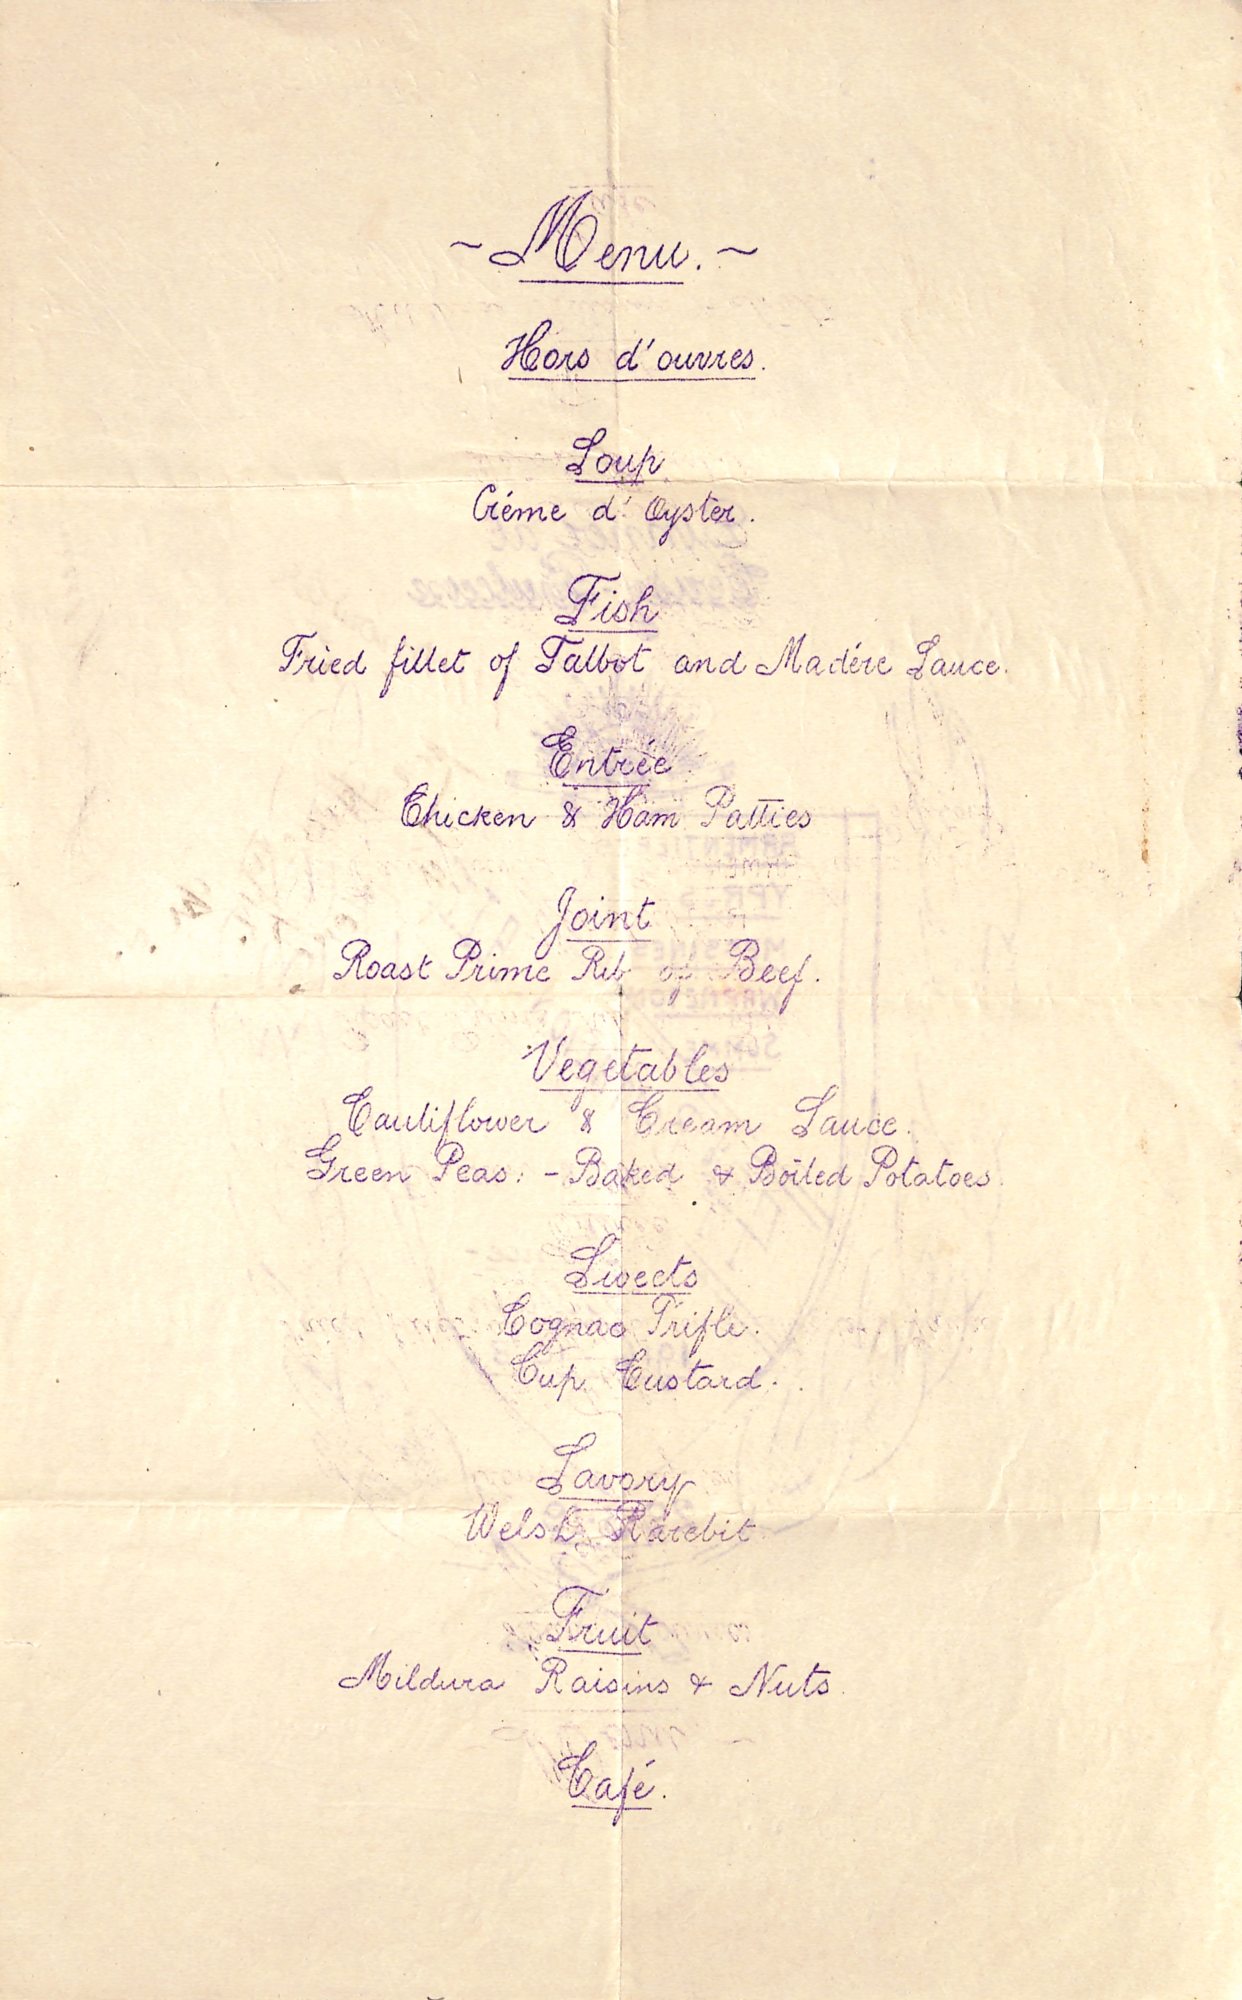 ~ Menu. ~
Hors d'ouvres.
Soup
Créme d' Oyster.
Fish
Fried fillet of Talbot and Madére Sauce.
Entrée
Chicken & Ham Patties
Joint
Roast Prime Rib of Beef.
Vegetables
Cauliflower & Cream Sauce.
Green Peas. - Baked & Boiled Potatoes.
Sweets
Cognac Trifle.
Cup Custard.
Savory
Welsh Rarebit
Fruit
Mildura Raisins & Nuts.
Café.